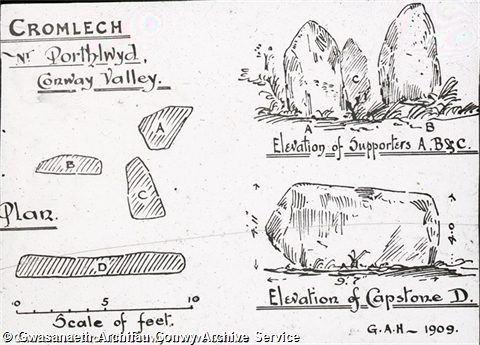 CROMLECH
Nr Porthlwyd,
Conway Valley.
A
B
C
Plan.
D
0 5 10
Scale of feet.
C
A B
Elevation of Supporters A, B & C.
4.11
4.0
9.7
Elevation of Capstone D.
G.A.H – 1909.
© Gwasanaeth Archifau Conwy Archive Service